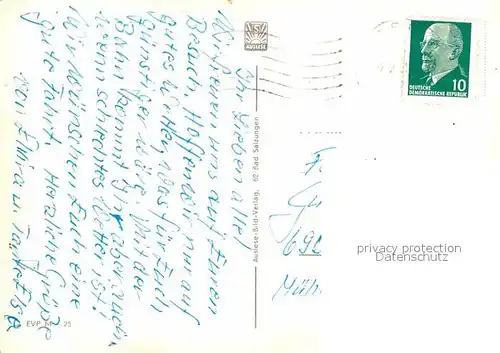 Ihr Lieben alle!
Wir freuen uns auf Euren
Besuch. Hoffen wir nur auf
gutes Wetter, was für Euch
günstiger wäre. Mit der
Bahn kommt Ihr aber auch
wenn schlechtes Wetter ist!
Wir wünschen Euch eine
gute Fahrt. Herzliche Grüße
von
AUSLESE
Auslese-Bild-Verlag, 62 Bad Salzungen
EVP M 25
DEUTSCHE
DEMOKRATISCHE REPUBLIK
10
692
Müh
privacy protection
Datenschutz